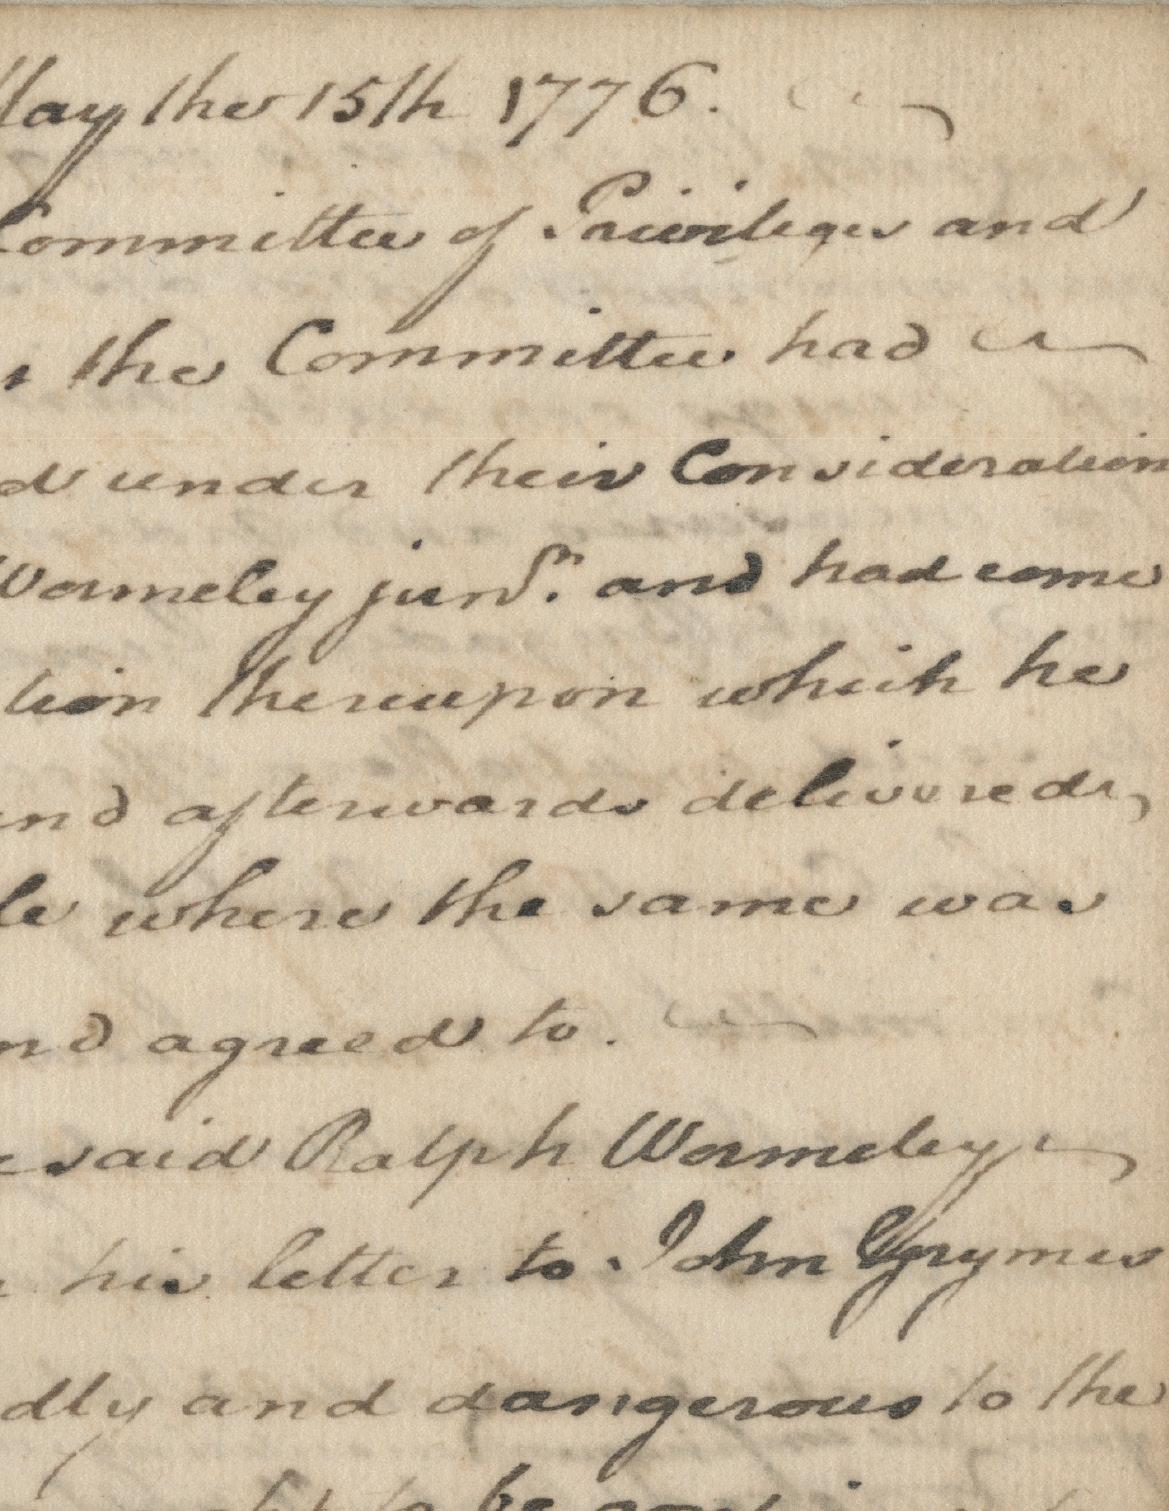 May the 15th 1776.
Committee of Privileges and
the Committee had
d under their Consideration
Wormeley junr. and had come
tion thereupon which he
and afterwards delivered,
le where the same was
and agreed to.
said Ralph Wormeley
his letter to John Grymes
dly and dangerous to the
to be